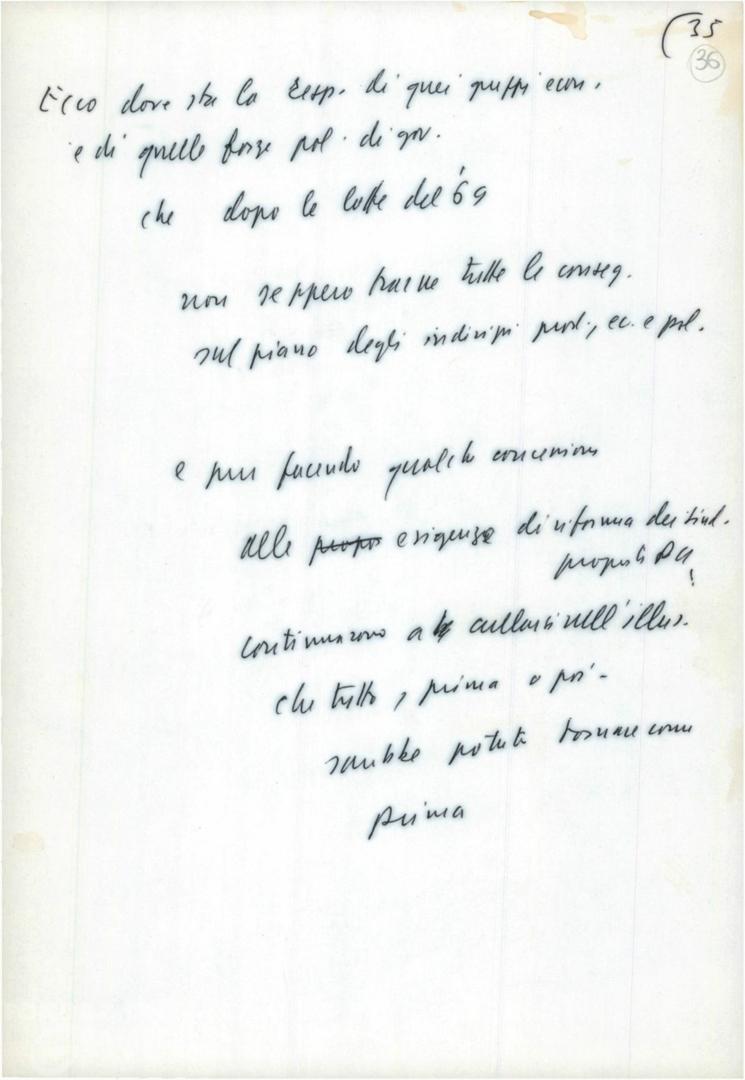 (35
36
Ecco dove sta la resp. di quei gruppi econ.
e di quelle forze pol. di gov.
che dopo le lotte del '69
non seppero trarne tutte le conseg.
sul piano degli indirizzi prod., ec. e pol.
e pur facendo qualche concessione
alle propos esigenze di riforma dei sind.
proposti
continuarono a cullarsi nell'illus.
che tutto, prima o poi -
sarebbe potuto tornare come
prima